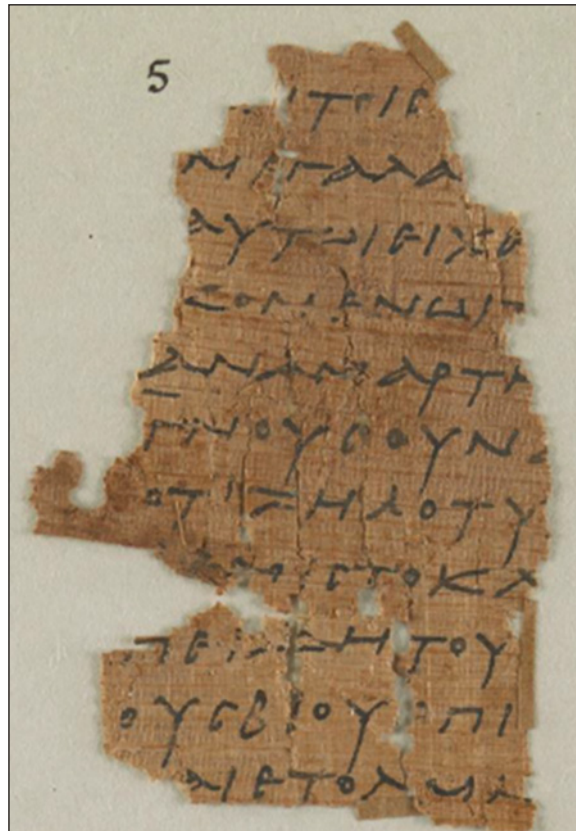 5
ΙΤΕΙΕ
ΜΕΓΑΛΑ
ΑΥΤΩΙΕΙΧΕ
ΣΟΜΕΝΩΙ
ΑΝΑΜΑΡΤΗ
ΝΟΥΣΟΥΝ
ΟΤΙΖΗΛΟΤΥ
ΕΤΟΚΑ
ΠΕΙΔΗΤΟΥ
ΟΥΣΒΙΟΥ ΠΙ
ΕΤΟΛΜΑ